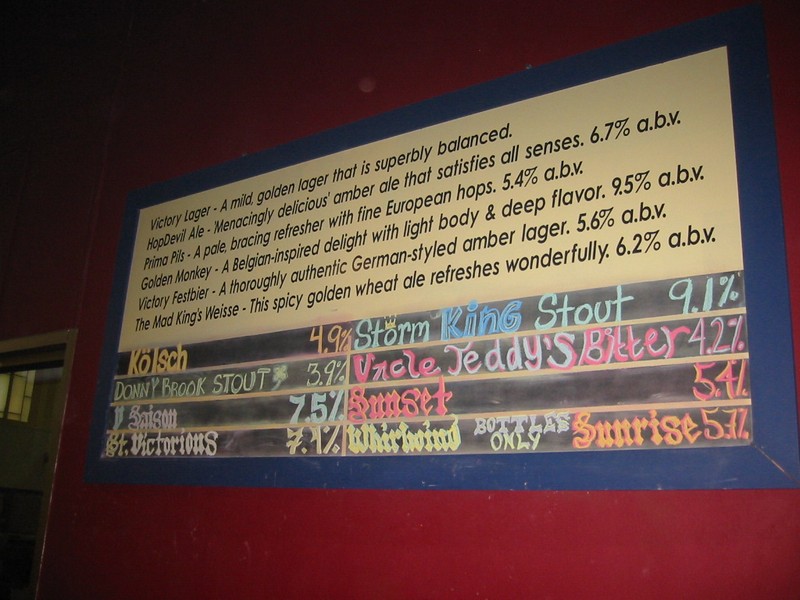 Victory Lager - A mild, golden lager that is superbly balanced.
HopDevil Ale - 'Menacingly delicious' amber ale that satisfies all senses. 6.7% a.b.v.
Prima Pils - A pale, bracing refresher with fine European hops. 5.4% a.b.v.
Golden Monkey - A Belgian-inspired delight with light body & deep flavor. 9.5% a.b.v.
Victory Festbier - A thoroughly authentic German-styled amber lager. 5.6% a.b.v.
The Mad King's Weisse - This spicy golden wheat ale refreshes wonderfully. 6.2% a.b.v.
Kölsch 4.9%
DONNYBROOK STOUT 3.9%
V Saison 7.5%
St. Victorious 7.4%
Storm King Stout 9.1%
Uncle Teddy's Bitter 4.2%
Sunset 5.4%
Whirlwind BOTTLES ONLY Sunrise 5.7%